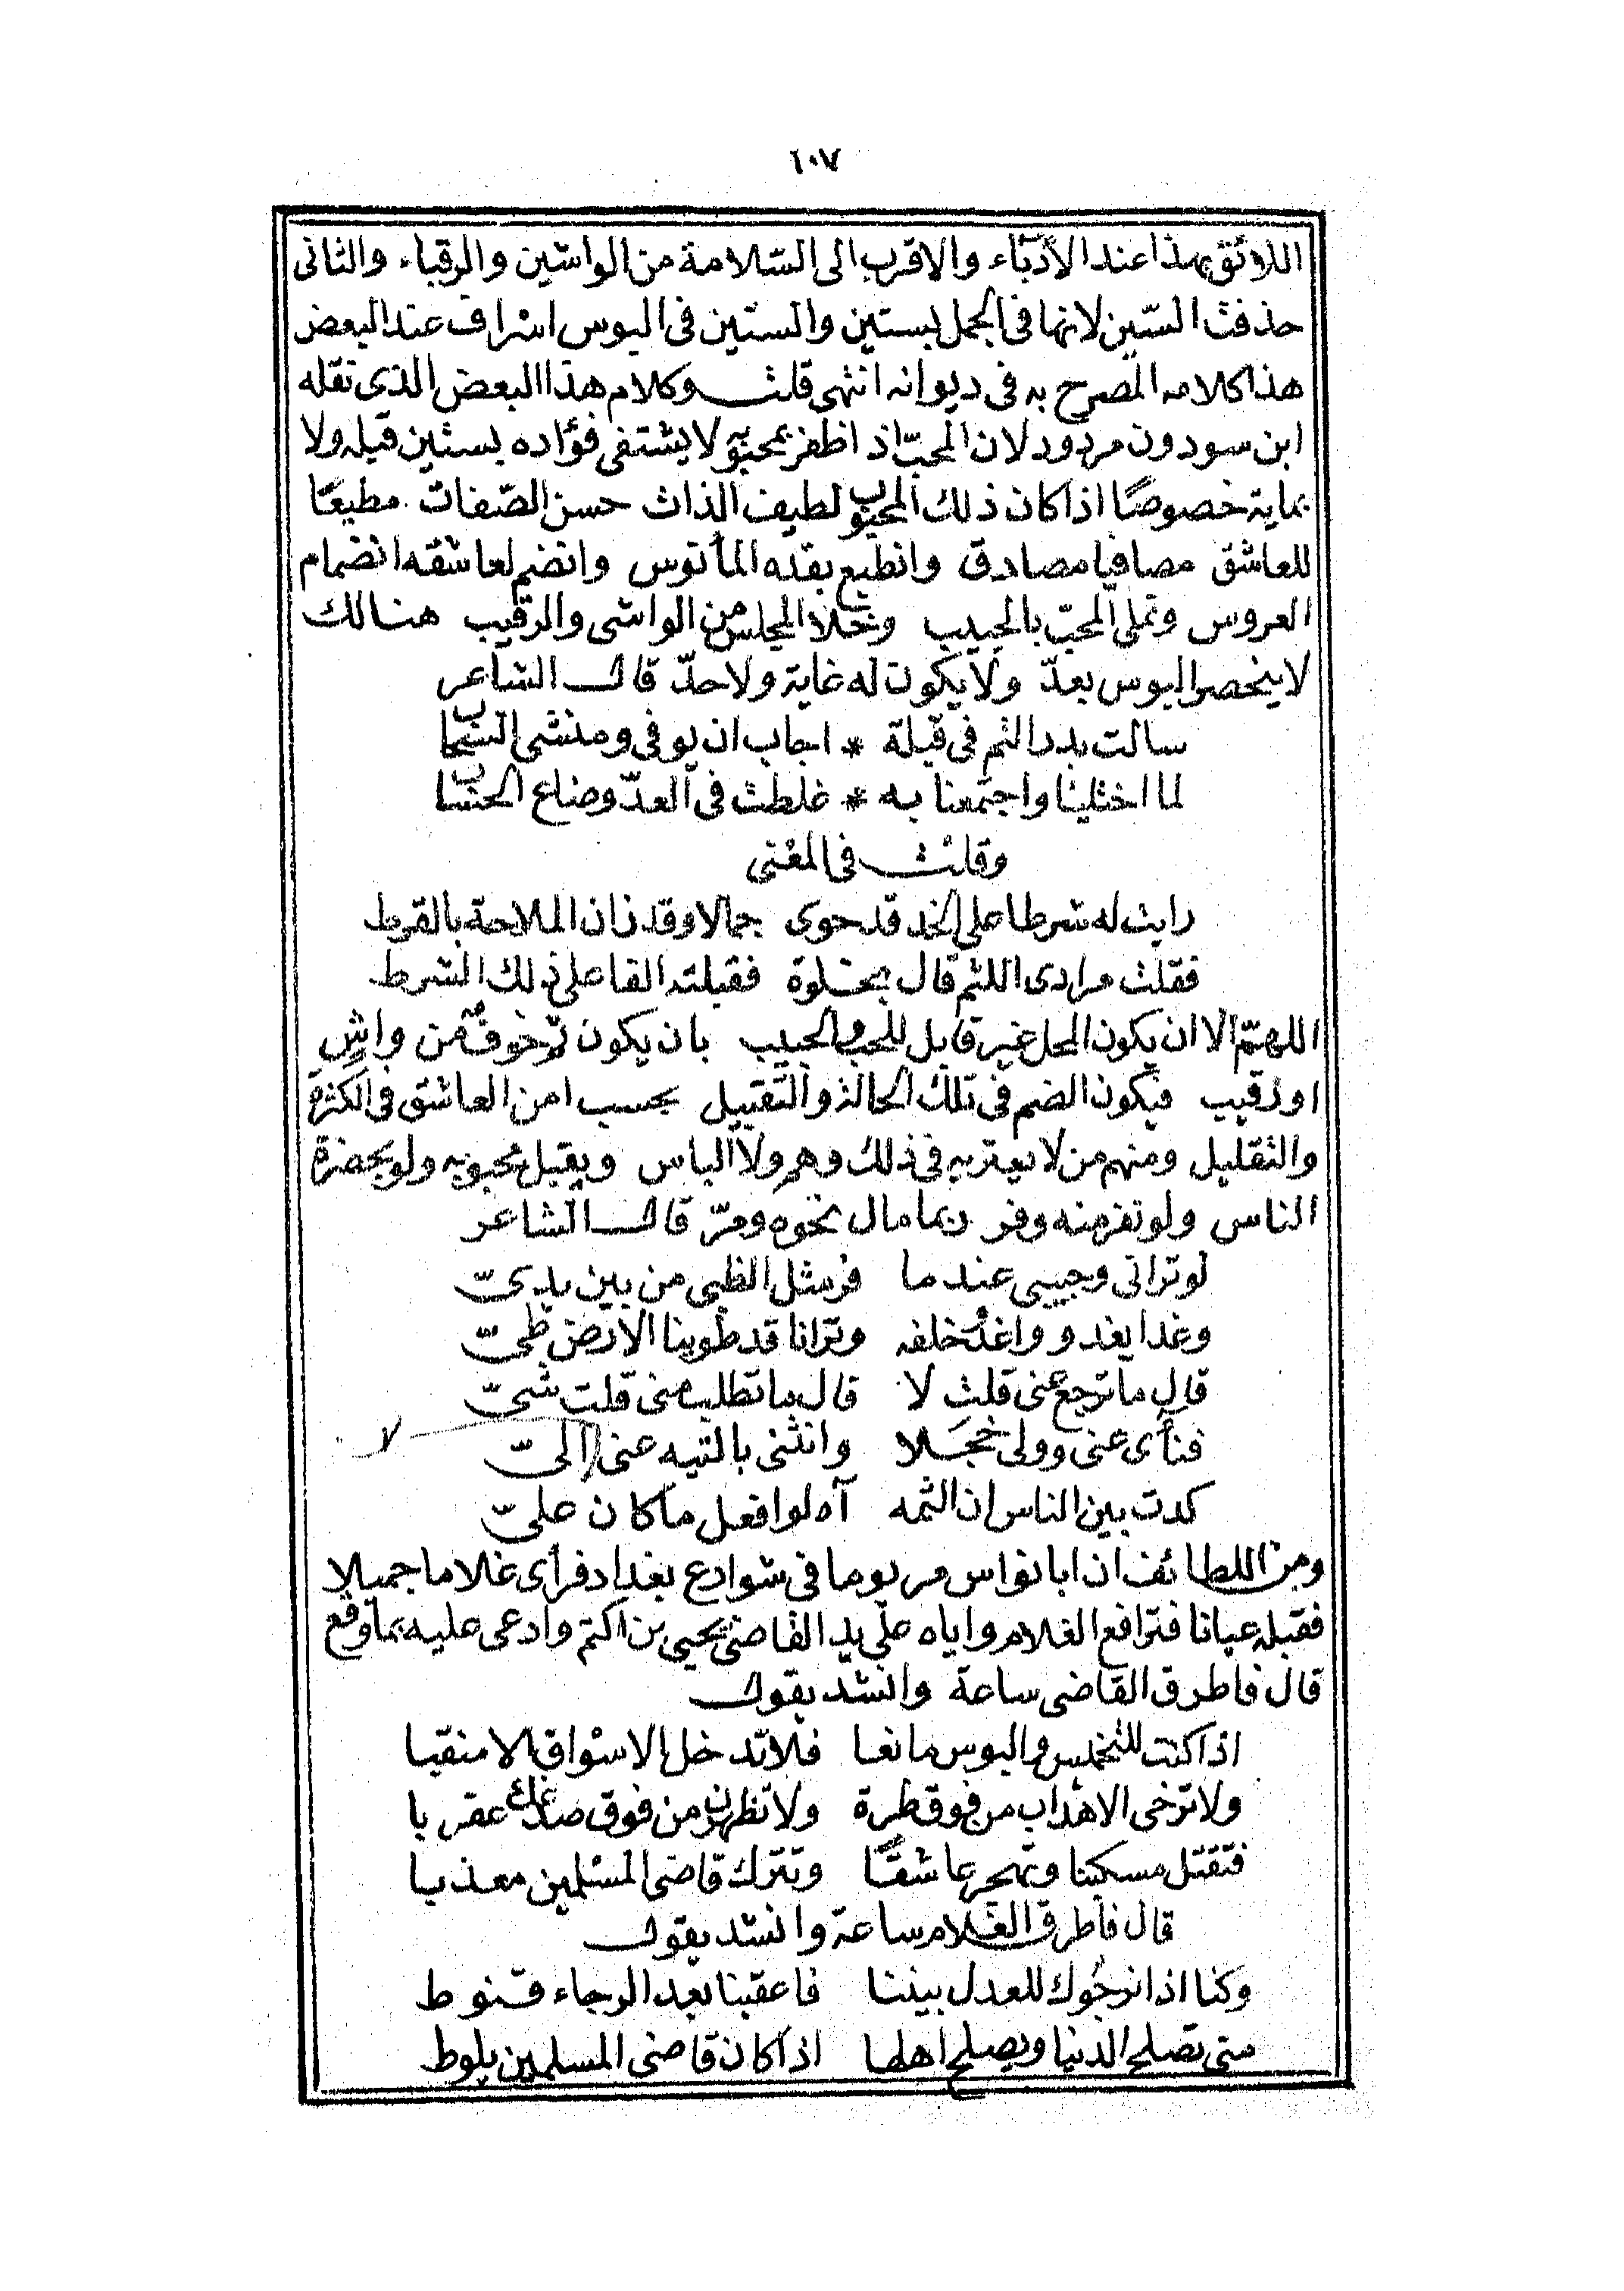 ١٠٧
اللائق بهذا عند الأدباء والاقرب الى السّلامة من الواشين والرقباء والثانى
حذفت السّين لانها فى الجمل بستين والستين فى البوس اسْراف عند البعض
هذا كلامه المصرح به فى ديوانه انتهى قلت وكلام هذا البعض الذى نقله
ابن سودون مردود لان المحبّ اذا ظفر بمحبوبه لا يشتفى فؤاده بستين قبله ولا
بماية خصوصًا اذا كان ذلك المحبوب لطيف الذات حسن الصّفات مطيعًا
للعاشق مصافيا مصادق وانطبع بقده المأنوس وانضم لعاشقه انضمام
العروس وتملى المحبّ بالحبيب وخلا المجلس من الواشى والرقيب هنالك
لا ينحصر البوس بعدّ ولا يكون له غاية ولا حدّ قال الشاعر
سالت بدر التم فى قبلة * اجاب ان يوفى ومنشى السّحاب
لما اختلينا واجتمعنا به * غلطت فى العدّ وضاع الحساب
وقلت فى المعْنى
رايت له شرطا على الخد قد حوى جمالا وقد زان الملاحة بالقرط
فقلت مرادى اللثم قال بخلوة فقبلته الفا على ذلك الشرط
اللهمّ الا ان يكون المحل غير قابل للمحب والحبيب بان يكون ثمّ خوف من واشٍ
او رقيب فيكون الضم فى تلك الحالة والتّقبيل بحسب امن العاشق فى الكثرة
والتقليل ومنهم من لا يعتريه فى ذلك وهم ولا الباس ويقبل محبوبه ولو بحضرة
الناس ولو نفر منه وفر ربما مال نحوه ومرّ قال الشاعر
لو ترانى وحبيبى عندما فرّ مثل الظبى من بين يدىّ
وغدا يغدو واغدُ خلفه وترانا قد طوينا الارض طىّ
قال ما ترجع عنى قلت لا قال ما تطلب منى قلت شىّ
فنأى عنى وولى خجَلا وانثنى بالتيه عنى لا الىّ
كدت بين الناس ان الثمه آه لو افعل ما كان علىّ
ومن اللطائف ان ابا نواس مر يوما فى شوارع بغداد فرأى غلاما جميلا
فقبله عيانا فترافع الغلام واياه على يد القاضى يحيى بن اكتم وادعى عليه بما وقع
قال فاطرق القاضى ساعة وانشد يقول
اذا كنت للتخميس والبوس مانعا فلا تدخل الاسْواق الا منقبا
ولا ترخى الاهداب من فوق طرة ولا تظهرن من فوق صدغك عقربا
فتقتل مسكينا وتهجر عاشقًا وتترك قاضى المسْلمين معذبا
قال فأطرق الغلام ساعة وانشد يقول
وكنا اذا نرجُوك للعدل بيننا فاعقبنا بعد الرجاء قنوط
متى تصلح الدنيا ويصلح اهلها اذا كان قاضى المسلمين يلوط